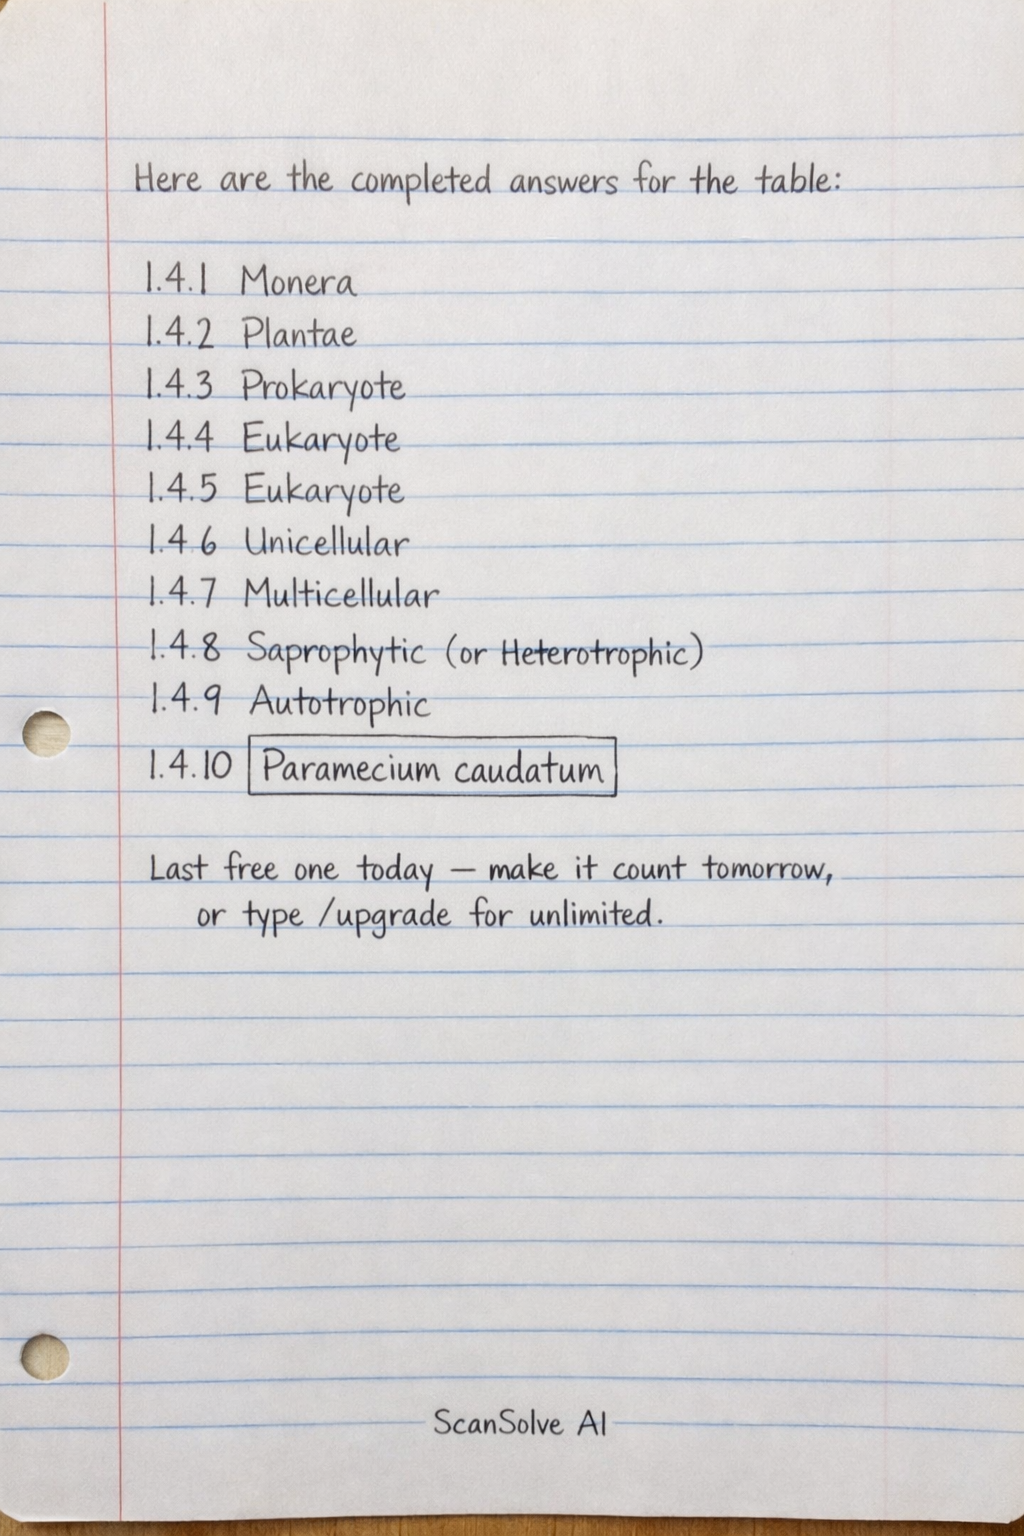 Here are the completed answers for the table:
1.4.1 Monera
1.4.2 Plantae
1.4.3 Prokaryote
1.4.4 Eukaryote
1.4.5 Eukaryote
1.4 6 Unicellular
1.4.7 Multicellular
1.4.8 Saprophytic (or Heterotrophic)
1.4.9 Autotrophic
1.4.10 Paramecium caudatum
Last free one today — make it count tomorrow,
or type /upgrade for unlimited.
ScanSolve AI